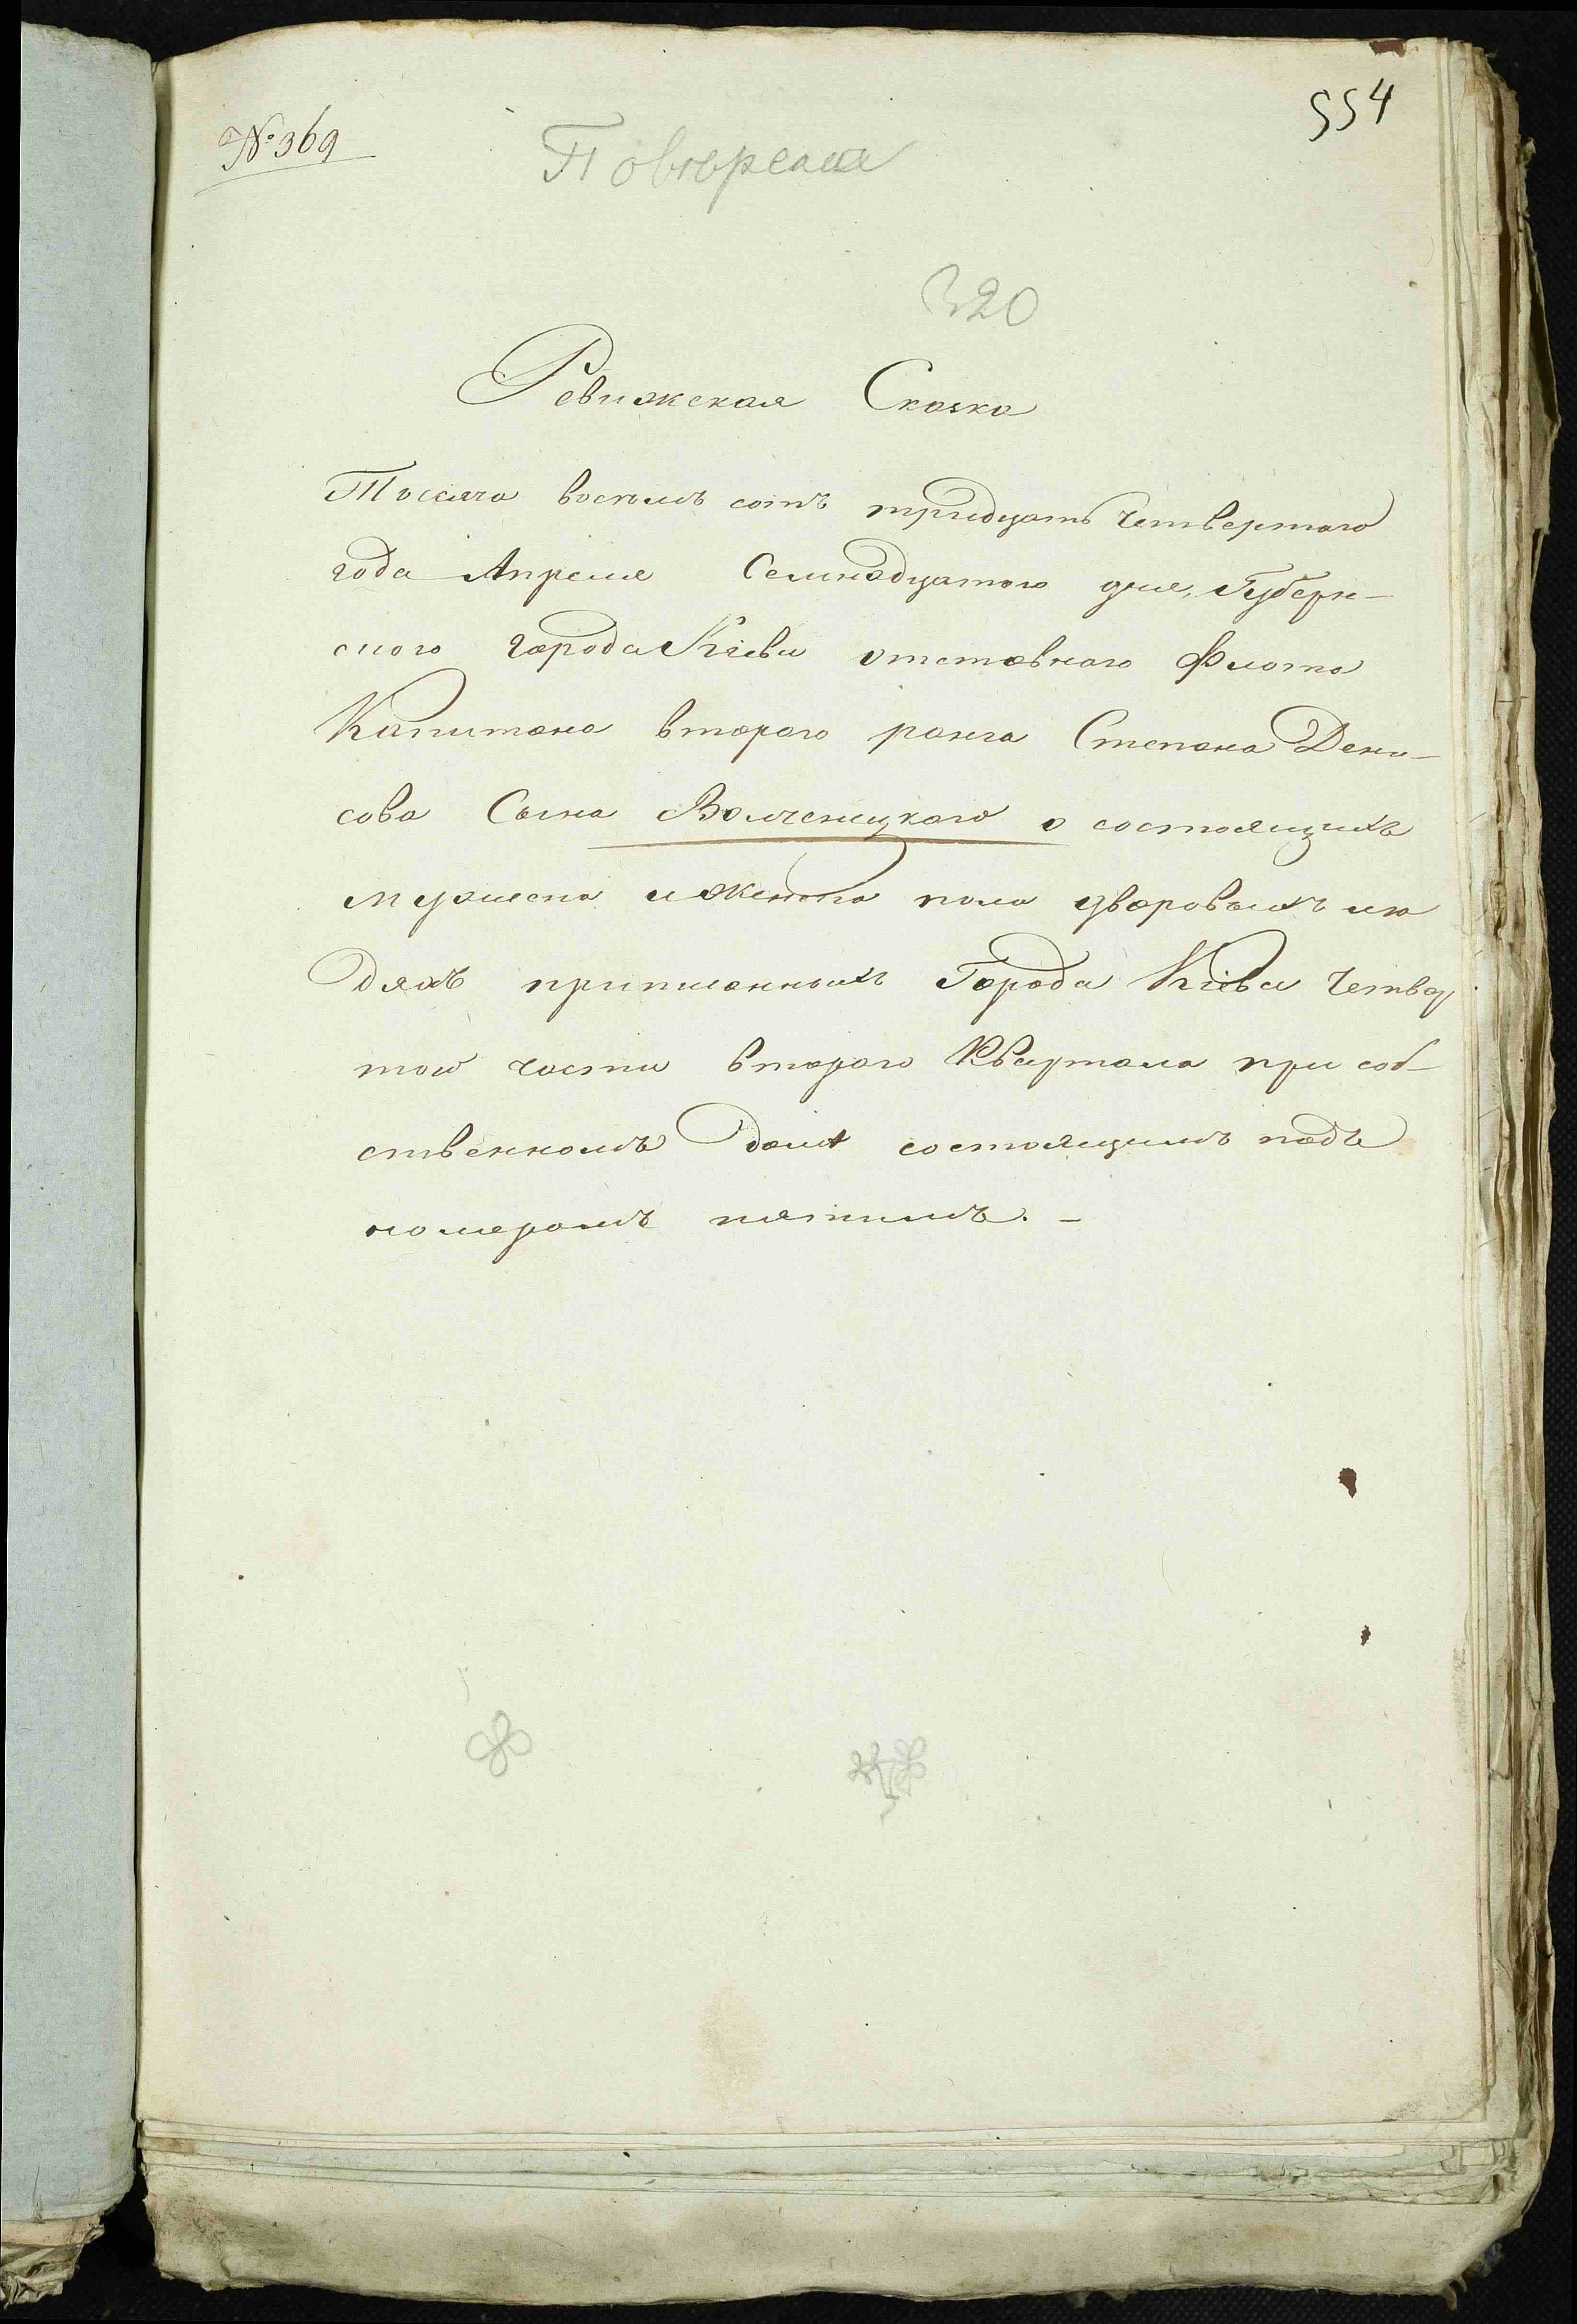 554
№ 369
Повѣрена
320
Ревижская Сказка
Тысяча восемь сотъ тридцать четвертаго
года Апреля Семнадцатого дня, Губерн-
ского города Кіева отставнаго Флота
Капитана втораго ранга Степана Дени-
сова Сына Волченецкого о состоящихъ
мужеска и женска пола дворовыхъ лю
дяхъ приписанныхъ Города Кіева Четвер
той части втораго Квартала при соб-
ственномъ доме состоящимъ подъ
номеромъ пятимъ. -